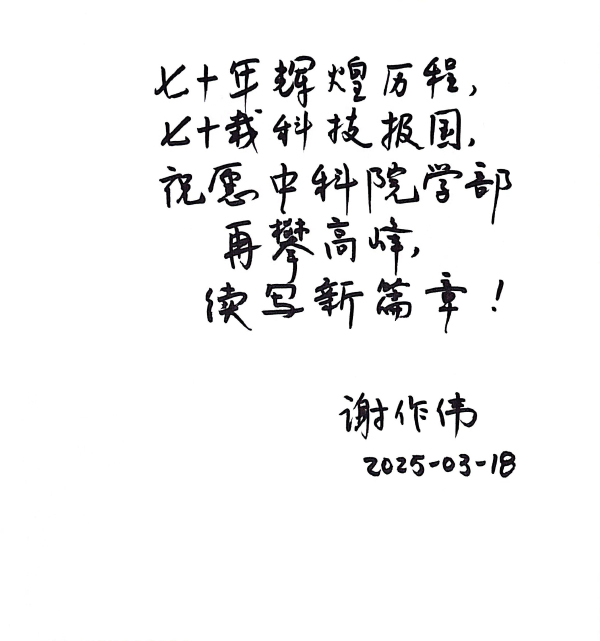 七十年辉煌历程,
七十载科技报国,
祝愿中科院学部
再攀高峰,
续写新篇章！
谢作伟
2025-03-18